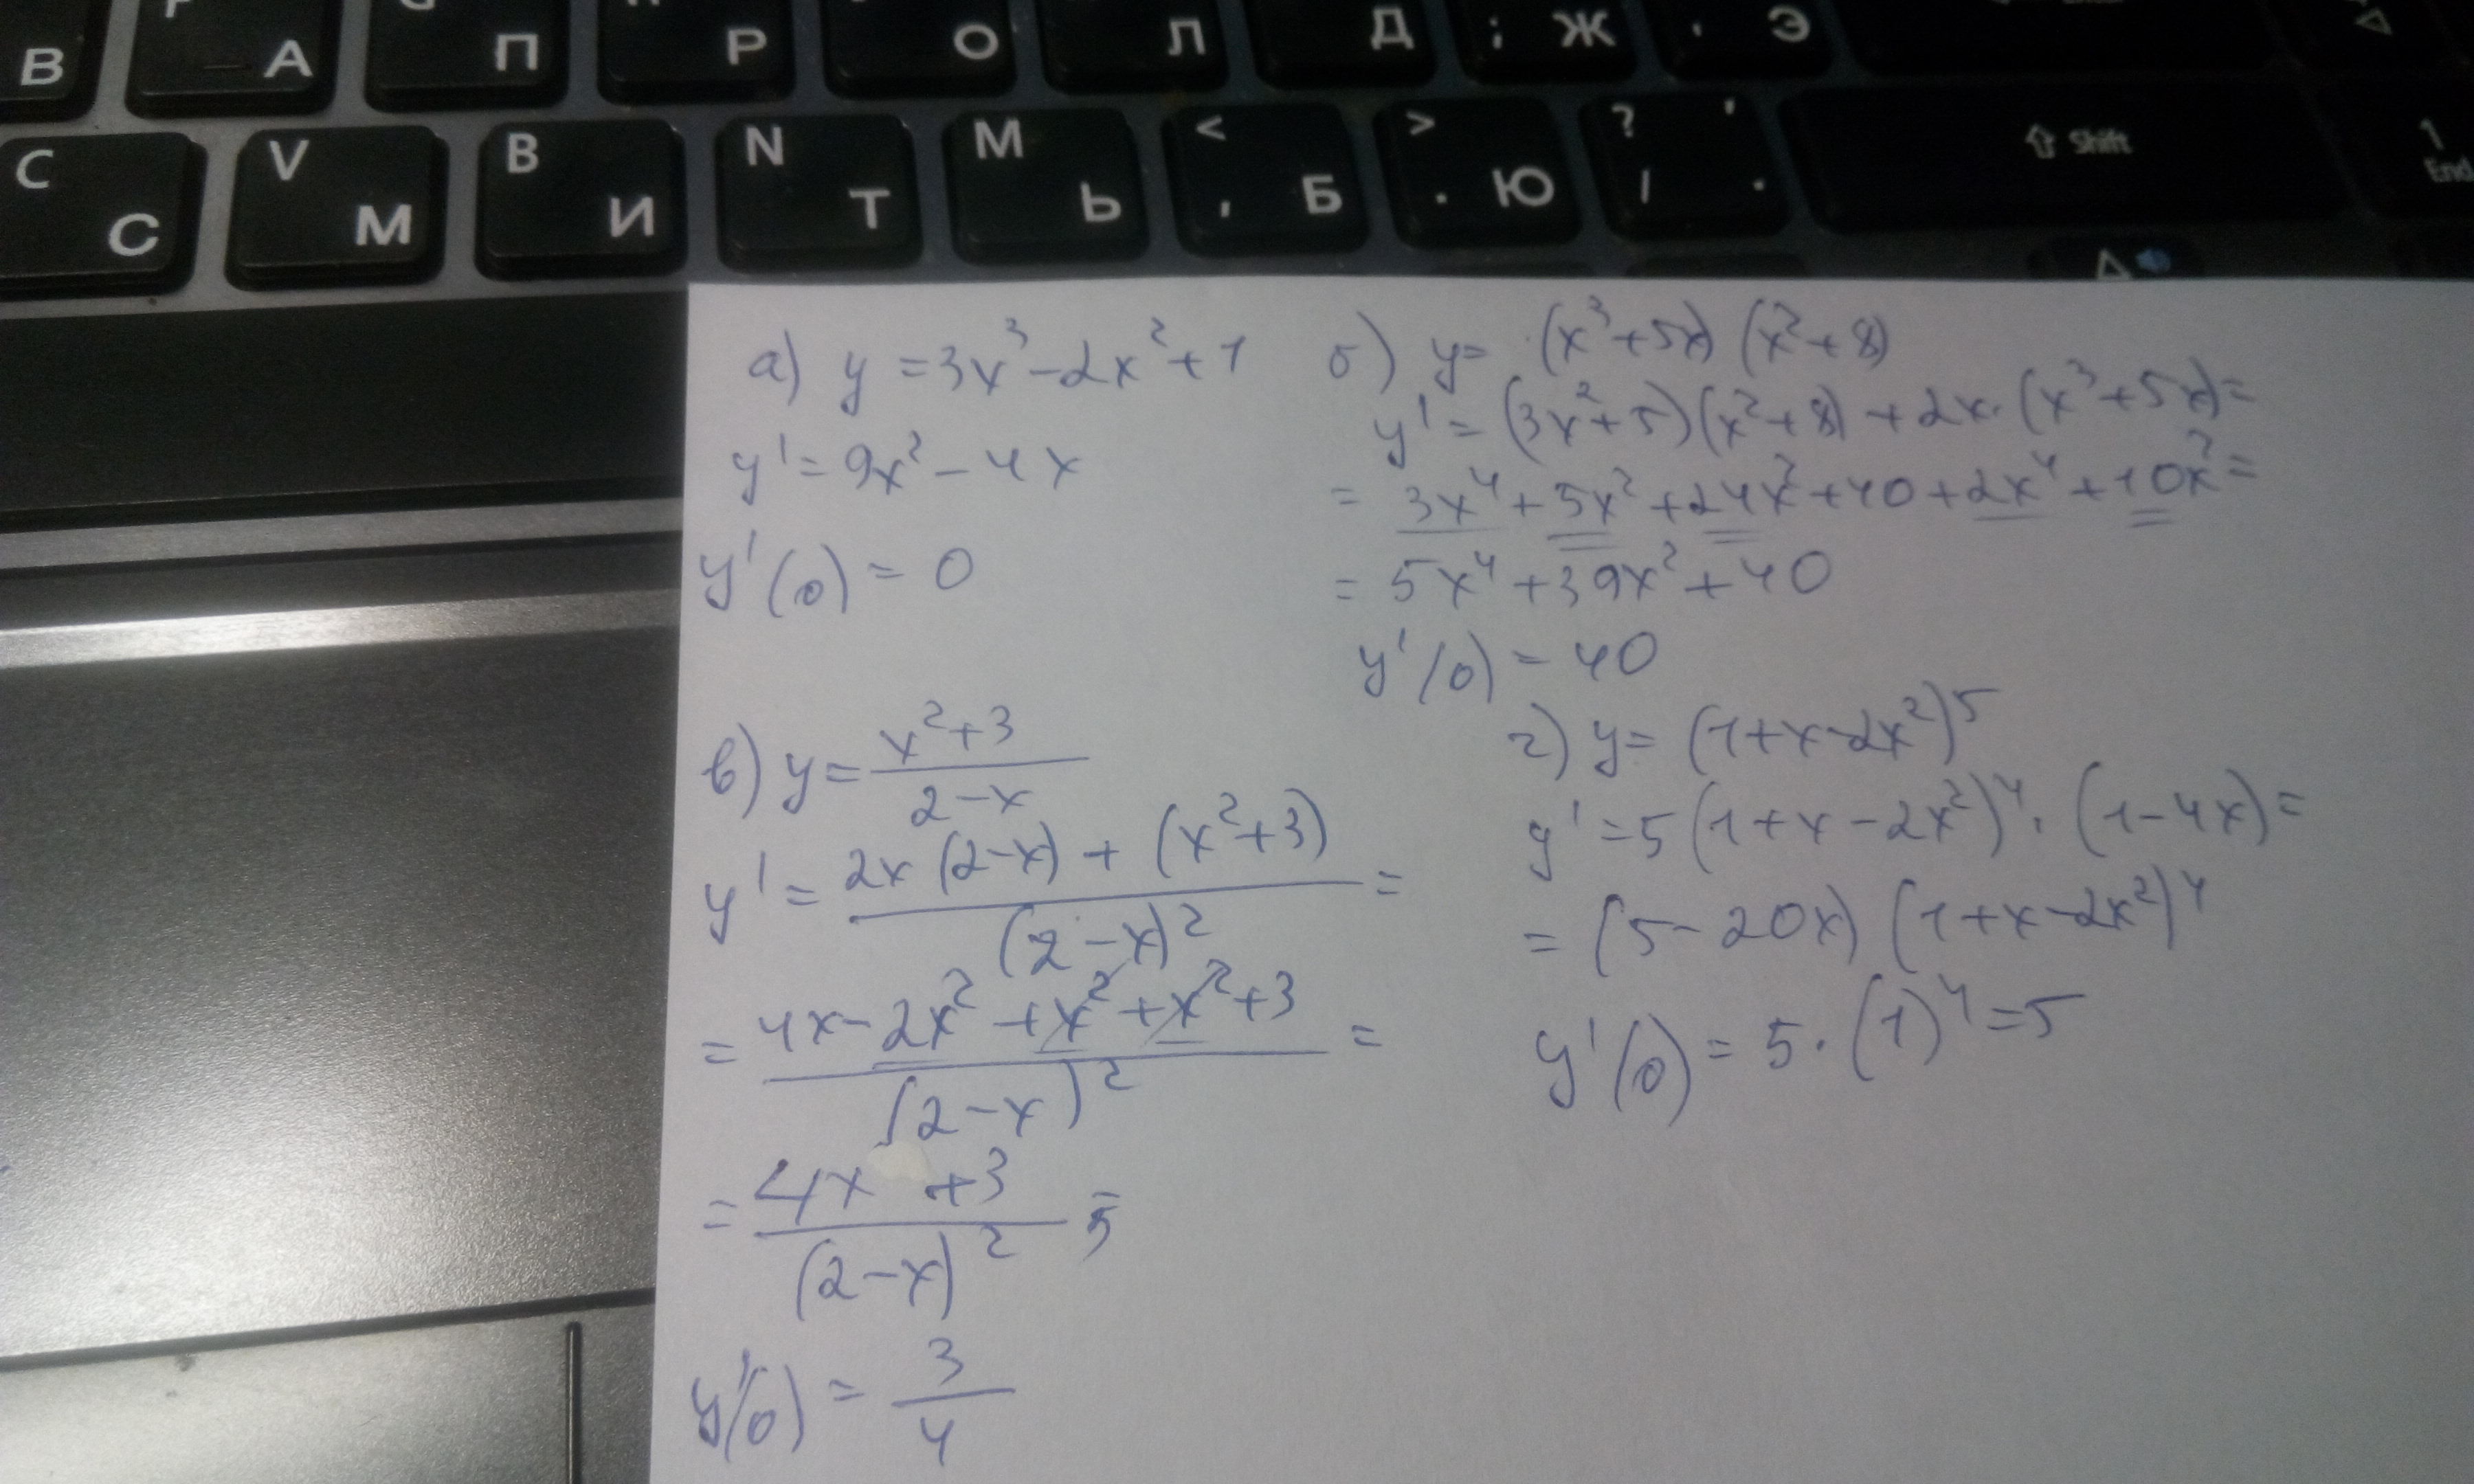 В А П Р О Л Д ; Ж ' Э
C С V М B И N Т M Ь < , Б > . Ю ? / ' . Shift 1 End
а) y = 3x³ - 2x² + 1
y' = 9x² - 4x
y'(0) = 0
б) y = (x³+5x)(x²+8)
y' = (3x²+5)(x²+8) + 2x·(x³+5x) =
= 3x⁴ + 5x² + 24x² + 40 + 2x⁴ + 10x² =
= 5x⁴ + 39x² + 40
y'(0) = 40
в) y = (x²+3)/(2-x)
y' = (2x(2-x) + (x²+3))/(2-x)² =
= (4x - 2x² + x² + x² + 3)/(2-x)² =
= (4x + 3)/(2-x)²
y'(0) = 3/4
г) y = (1+x-2x²)⁵
y' = 5(1+x-2x²)⁴·(1-4x) =
= (5-20x)(1+x-2x²)⁴
y'(0) = 5·(1)⁴ = 5